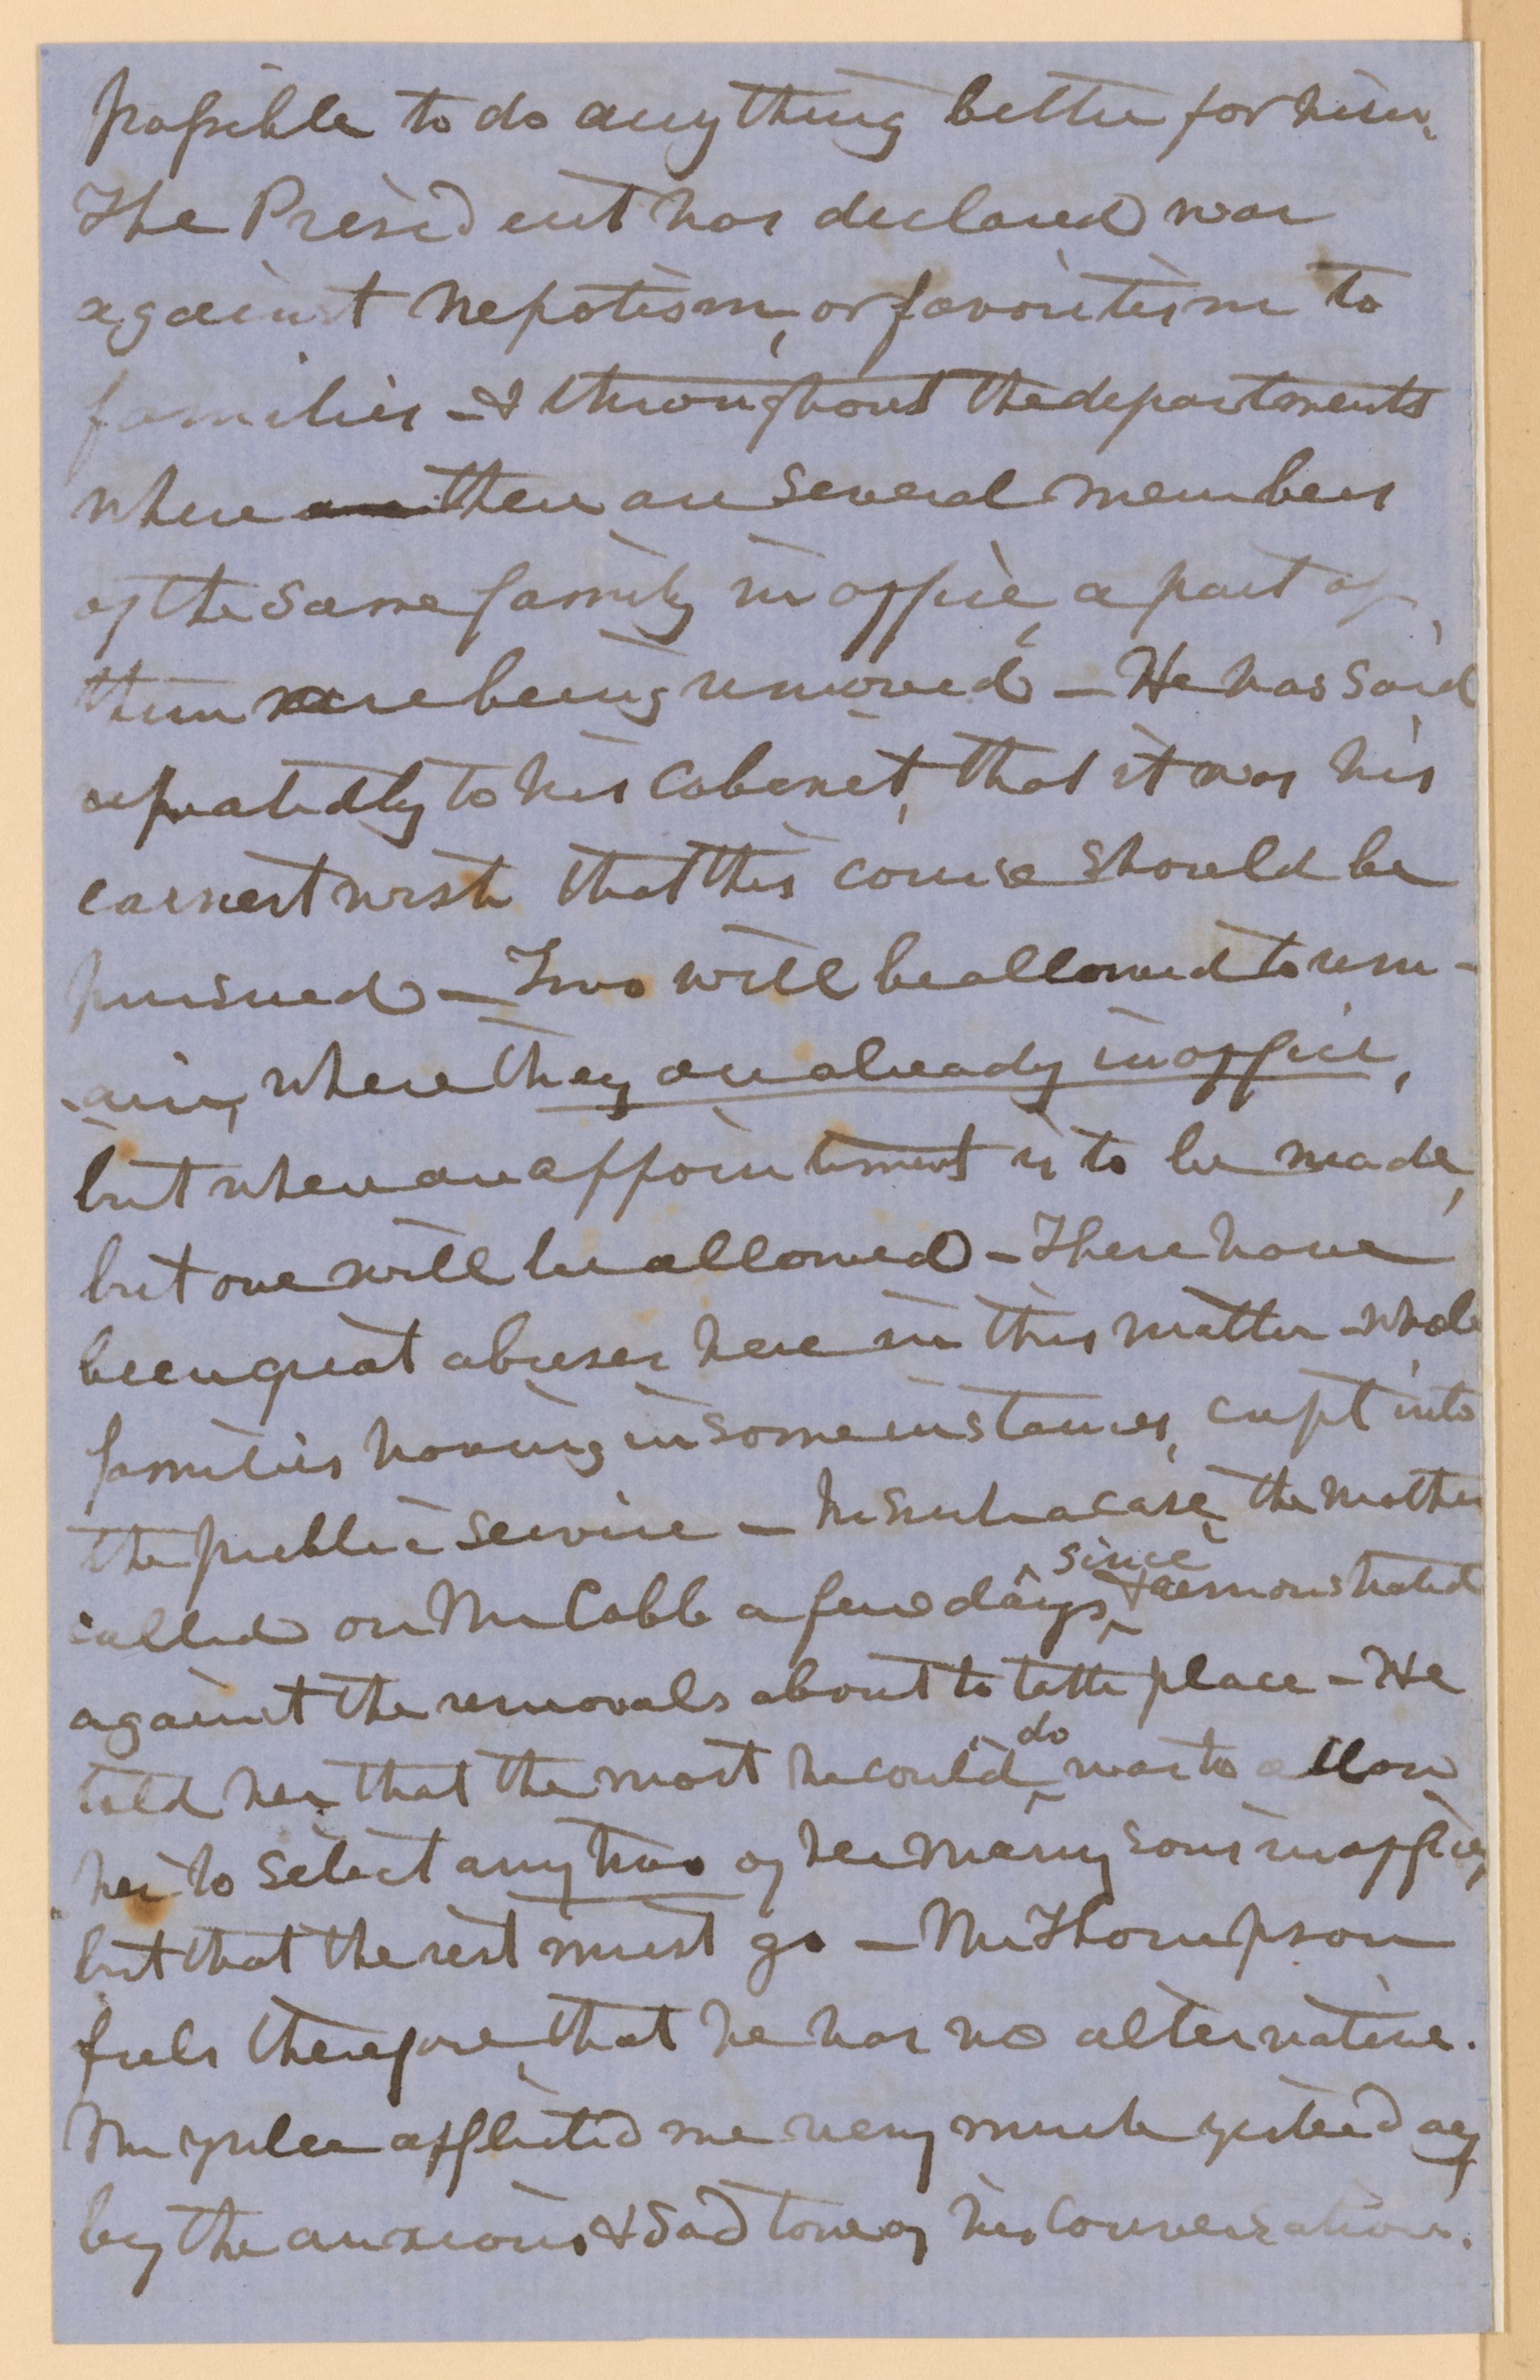 possible to do anything better for him.
The President has declared war
against nepotism, or favoritism to
families - & throughout the departments
where there are several members
of the same family in office, a part of
them are being removed - He has said
repeatedly to his Cabinet, that it was his
earnest wish that this course should be
pursued - Two will be allowed to rem-
-ain, where they are already in office,
but when an appointment is to be made,
but one will be allowed - There have
been great abuses here in this matter - whole
families having in some instances, crept into
the public service - In such a case, the mother
called on Mr Cobb a few days since & remonstrated
against the removals about to take place - He
told her that the most he could do was to allow
her to select any two of her many sons in office,
but that the rest must go - Mr Thompson
feels therefore, that he has no alternative.
Mr Yulee afflicted me very much yesterday
by the anxious & sad tone of his conversation.